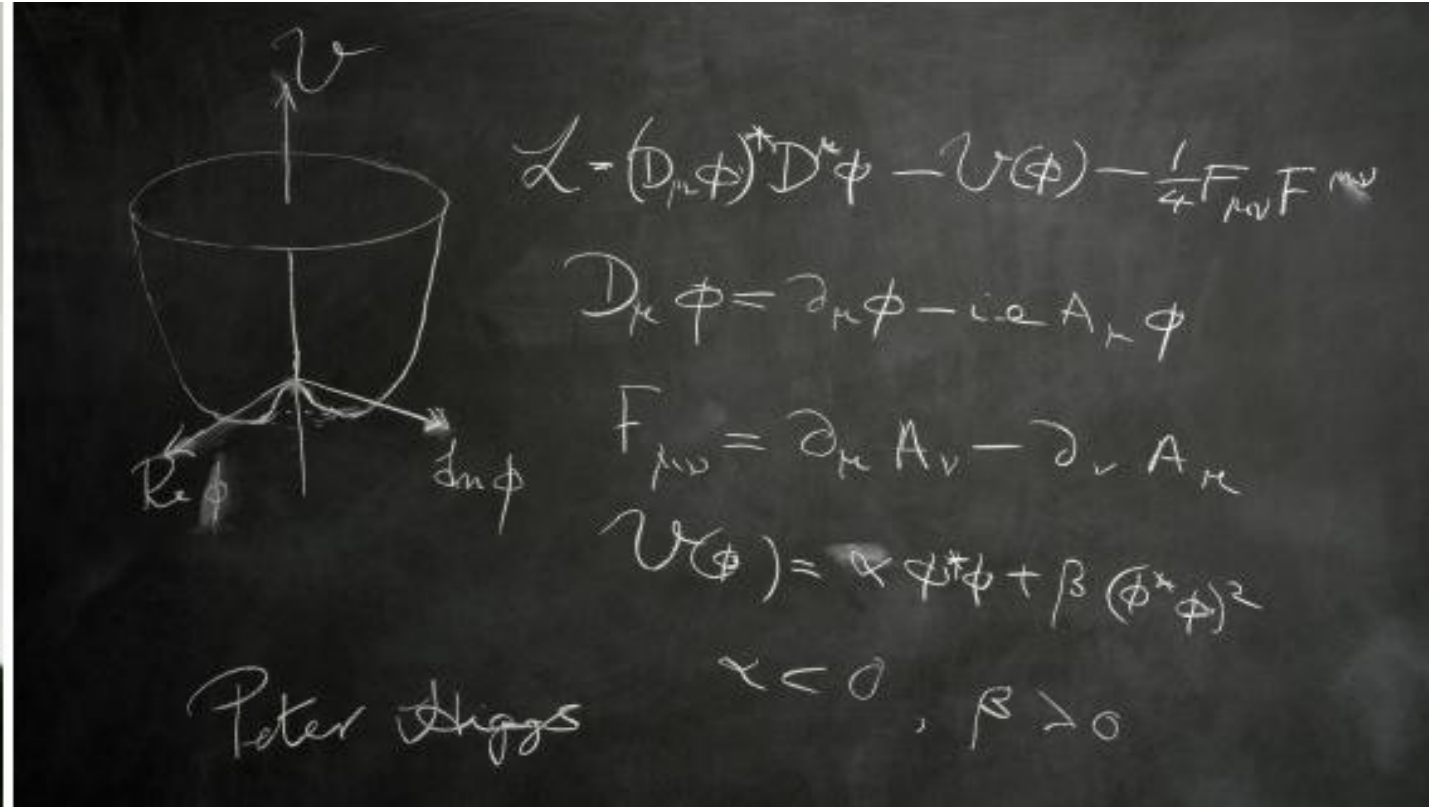 V
ℒ = (D_μ ϕ)^* D^μ ϕ − V(ϕ) − 1/4 F_μν F^μν
D_μ ϕ = ∂_μ ϕ − i e A_μ ϕ
F_μν = ∂_μ A_ν − ∂_ν A_μ
Re ϕ
Im ϕ
V(ϕ) = α ϕ^*ϕ + β (ϕ^* ϕ)^2
α < 0, β > 0
Peter Higgs